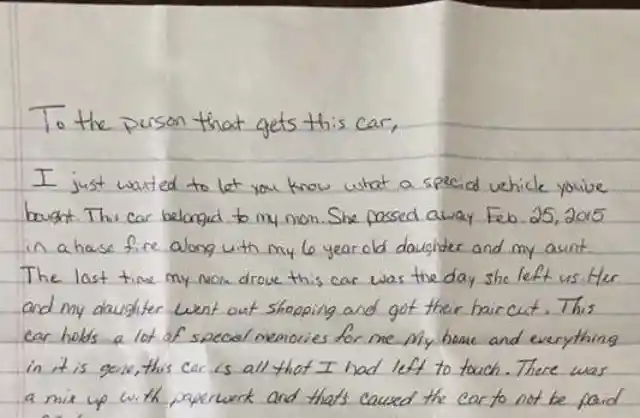 To the person that gets this car,
I just wanted to let you know what a special vehicle you've
bought. This car belonged to my mom. She passed away Feb. 25, 2015
in a house fire along with my 6 year old daughter and my aunt.
The last time my mom drove this car was the day she left us. Her
and my daughter went out shopping and got their haircut. This
car holds a lot of special memories for me. My home and everything
in it is gone, this car is all that I had left to touch. There was
a mix up with paperwork and thats caused the car to not be paid